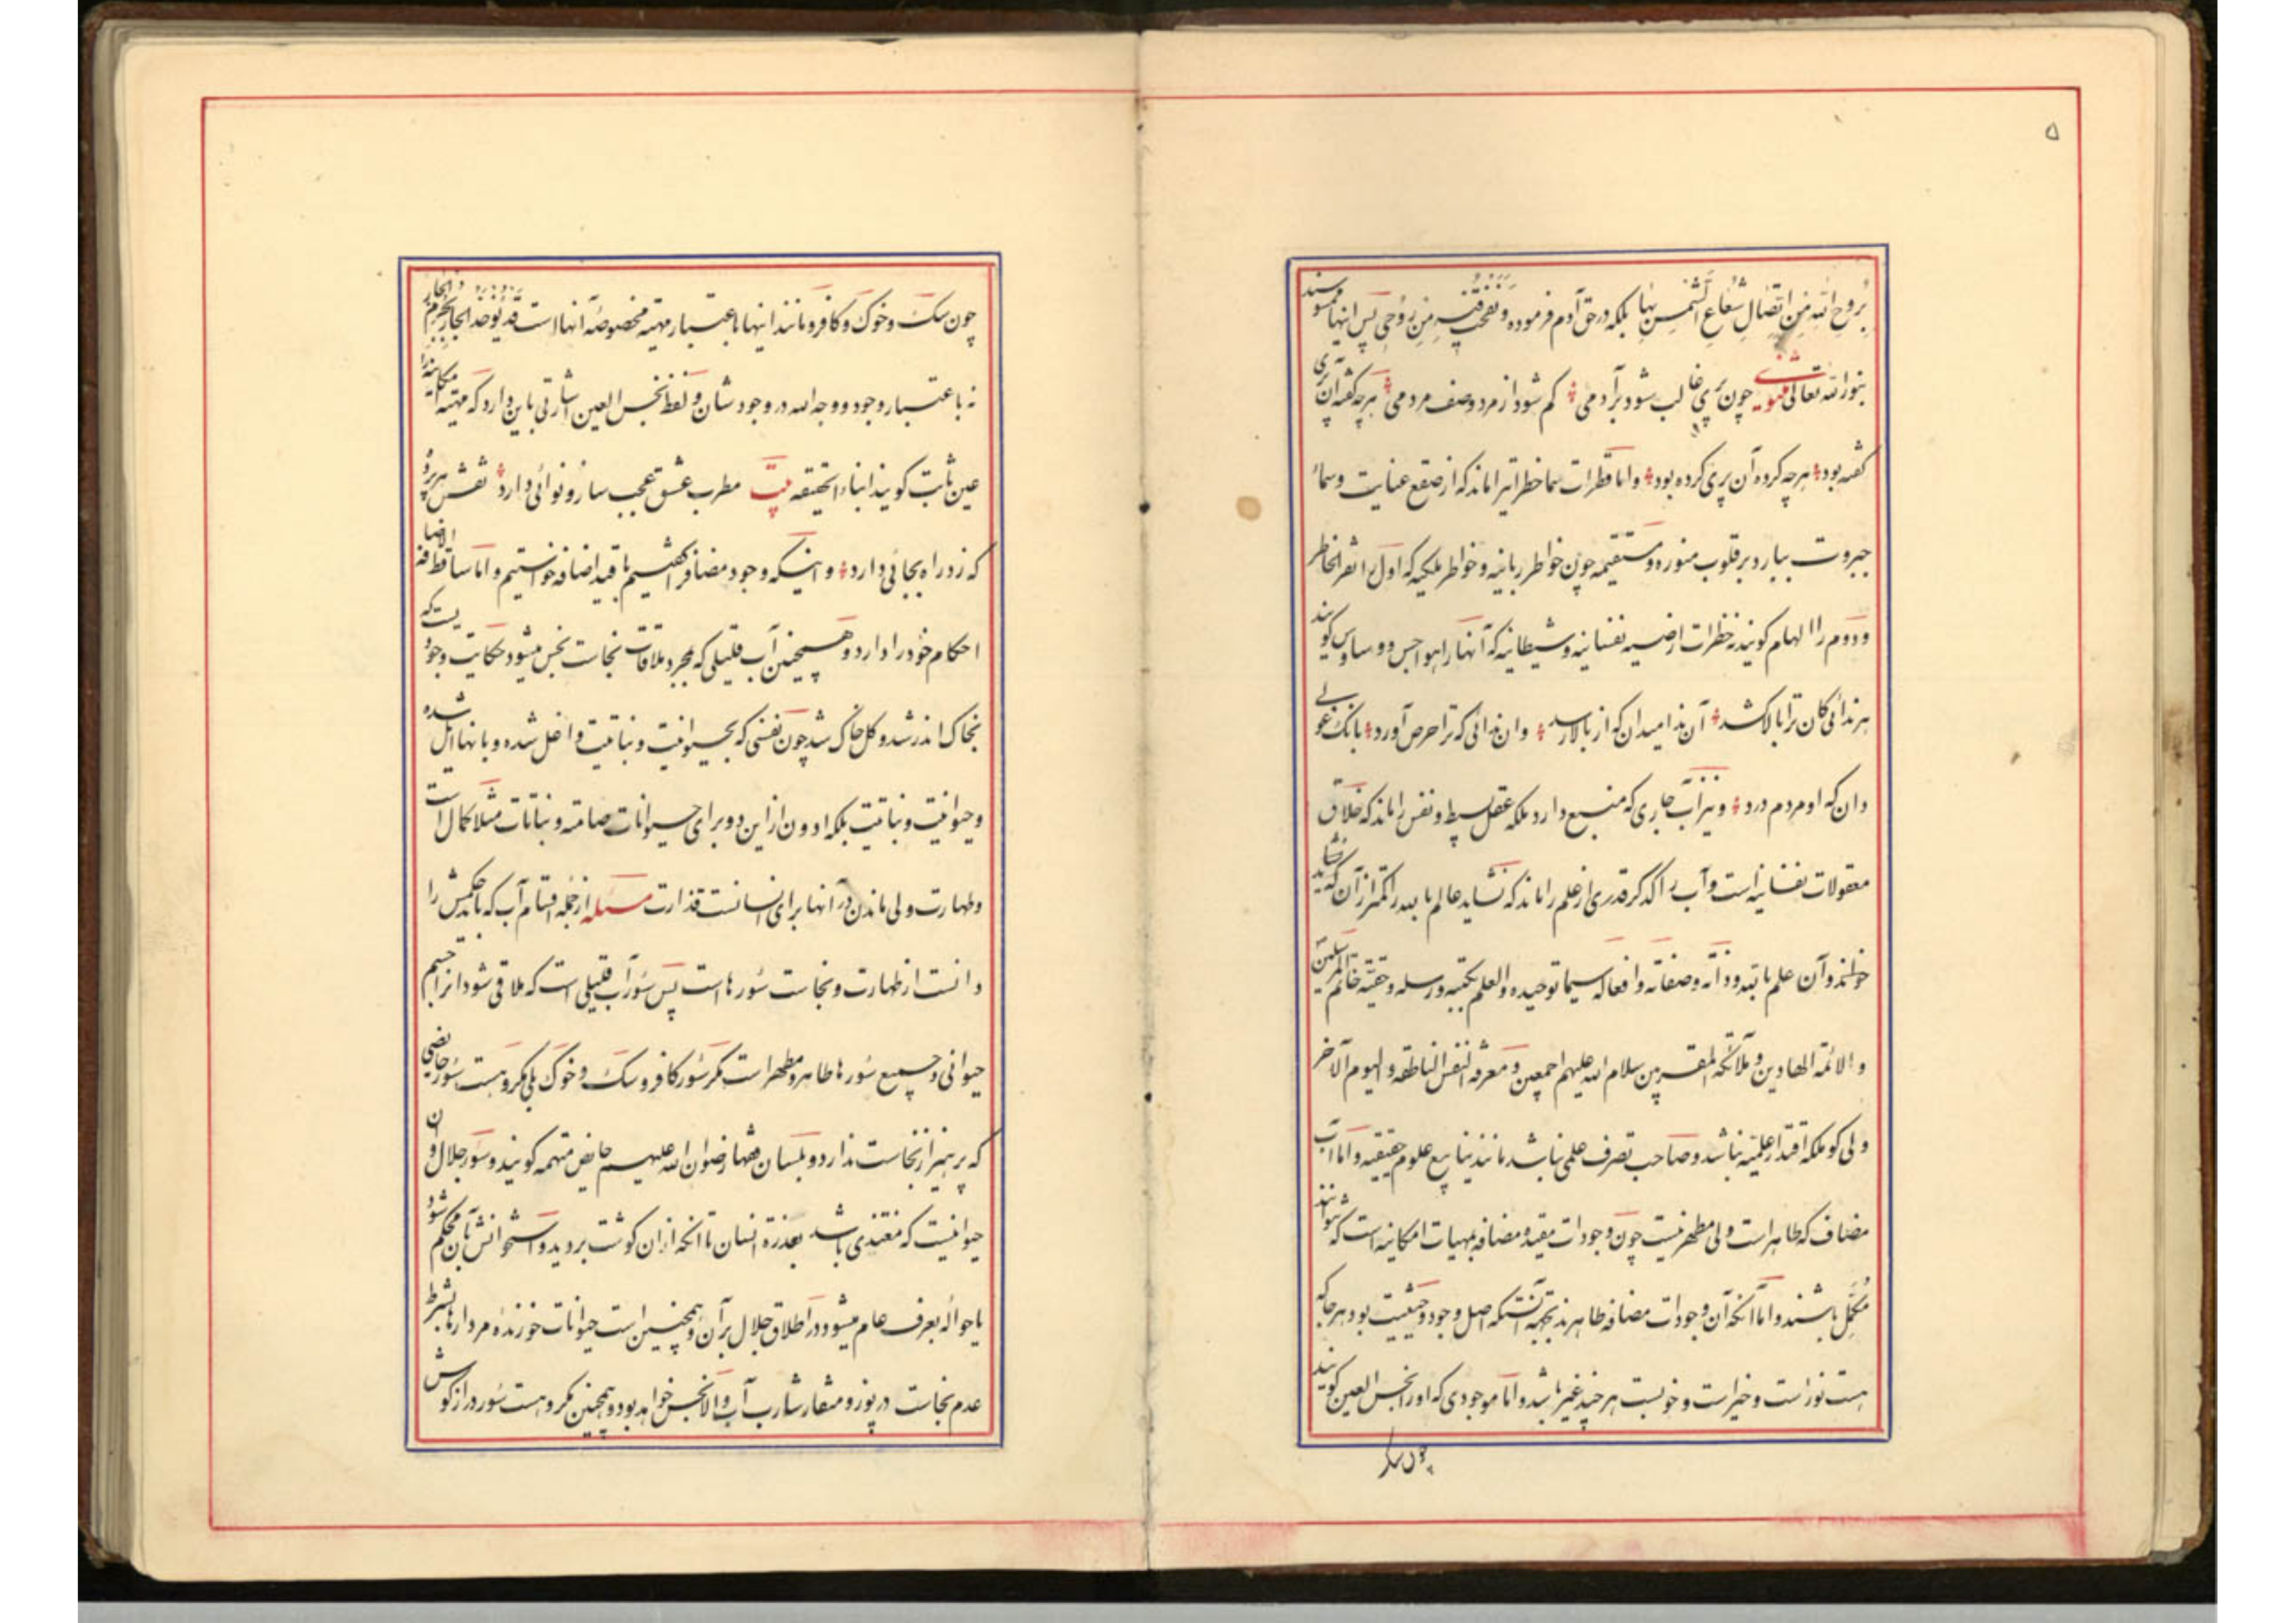 ۵
بُروحِ اللهِ مِن اتّصالِ شُعاعِ الشّمسِ بِها بلکه در حق آدم فرموده و نفخت فیه مِن رُوحی پس اینها ممسوسند
بنور الله تعالی مثنوی چون پری غالب شود بر آدمی کم شود از مرد وصف مردمی هر چه گفت آن پری
گفته بود هر چه کرده آن پری کرده بود و اما قطرات سما خطراتیرا ماند که از صقع عنایت و سماء
جبروت ببارد بر قلوب منوره و مستقیمه چون خواطر ربانیه و خواطر ملکیه که اول را نقر الخاطر
و دوم را الهام گویند نه خطرات ارضیه نفسانیه و شیطانیه که آنها را هواجس و وساوس گویند
هر ندائی کان ترا بالا کشد آن ندا میدان که از بالا رسد وان ندائی که ترا حرص آورد بانک غولی
دان که او مردم درد و نیز آب جاری که منبع دارد ملکه عقل بسیط و نفس را ماند که خلاق
معقولات نفسانیه است و آب راکد کر قدری از علم را ماند که نشاید عالم باید را کمتر از آن که
خوانند و آن علم بالله و ذاته و صفاته و افعاله سیما توحیده و العلم بکتبه و رسله و حقیة خاتم المرسلین
و الائمة الهادین و ملائکه المقربین سلام الله علیهم اجمعین و معرفة النفس الناطقه و الیوم الآخر
ولی کو ملکه اقتدار علمیّه نباشد و صاحب تصرف علمی نباشد مانند ینابیع علوم حقیقیه و اما آب
مضاف که طاهر است ولی مطهر نیست چون وجودات مقیده و مضافه بمهیات امکانیه است که نتوانند
مُکَمِّل باشند و اما آنکه آن وجودات مضافه طاهرند بجهة آنستکه اصل وجود و حیثیت بود هر جا که
هست نور است و خیر است و خوبست هر چند غیر باشد و اما موجودی که او را نجس العین گویند
چون سک
چون سک و خوک و کافر و مانند اینها باعتبار مهیّه مخصوصه آنها است قد یُؤخذ الجار بجُرم الجار
نه باعتبار وجود و وجه الله در وجود شان و لفظ نجس العین اشارتی باین دارد که مهیّه امکانیه را
عین ثابت گویند ابناء الحقیقه بیت مطرب عشق عجب ساز و نوائی دارد نقش هر پرده
که زد راه بجائی دارد و اینکه وجود مضاف را گفتیم با قید اضافه خواستیم و اما ساقط الاضافه
احکام خود را دارد و همچنین آب قلیلی که بمجرد ملاقات نجاست نجس میشود حکایت وجودیست که
بخاک اندر شد و کل خاک شد چون نفسی که بحیوانیت و نباتیت واغل شده و بانها ایل شده
و حیوانیت و نباتیت بلکه ادون از این دو برای حیوانات صامته و نباتات مثلا کمال است
و طهارت ولی ماندن در آنها برای انسانست قذارت مسئله از جمله اقسام آب که باید حکمش را
دانست از طهارت و نجاست سُورها است پس سُور آب قلیلی است که ملاقی شود انرا جسم
حیوانی و جمیع سُورها طاهر و مطهر است مکر سُور کافر و سک و خوک بلی مکروهست سُور حایضی
که پرهیز از نجاست ندارد و بلسان فقها رضوان الله علیهم حایض متهمه گویند و سور جلال و آن
حیوانیست که مغتذی باشد بعذرة انسان تا آنکه از ان گوشت بروید و استخوانش بآن محکم شود
یا حواله بعرف عام میشود در اطلاق جلال بر آن و همچنین است حیوانات خورنده مردارها بشرط
عدم نجاست در پوز و منقار شارب آب و الا نجس خواهد بود و همچنین مکروهست سُور دراز گوش